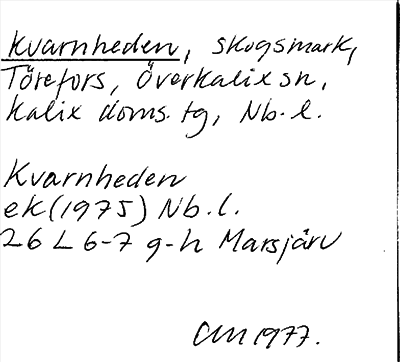 Kvarnheden, skogsmark,
Törefors, Överkalix sn,
Kalix doms. tg, Nb. l.
Kvarnheden
ek (1975) Nb. l.
26 L 6-7 g-h Marsjärv
CM 1977.